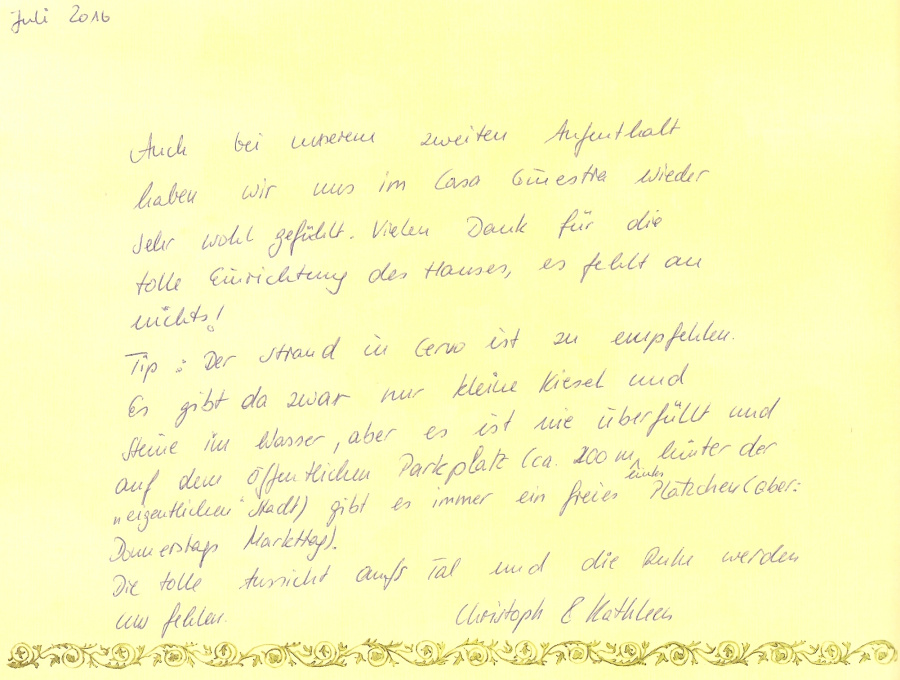 Juli 2016
Auch bei unserem zweiten Aufenthalt
haben wir uns im Casa Ginestra wieder
sehr wohl gefühlt. Vielen Dank für die
tolle Einrichtung des Hauses, es fehlt an
nichts!
Tip: Der Strand in Cervo ist zu empfehlen.
Es gibt da zwar nur kleine Kiesel und
Steine im Wasser, aber es ist nie überfüllt und
auf dem öffentlichen Parkplatz (ca. 200 m hinter der
links
"eigentlichen" Stadt) gibt es immer ein freies Plätzchen (aber:
Donnerstags Markttag).
Die tolle Aussicht aufs Tal und die Ruhe werden
uns fehlen. Christoph & Kathleen